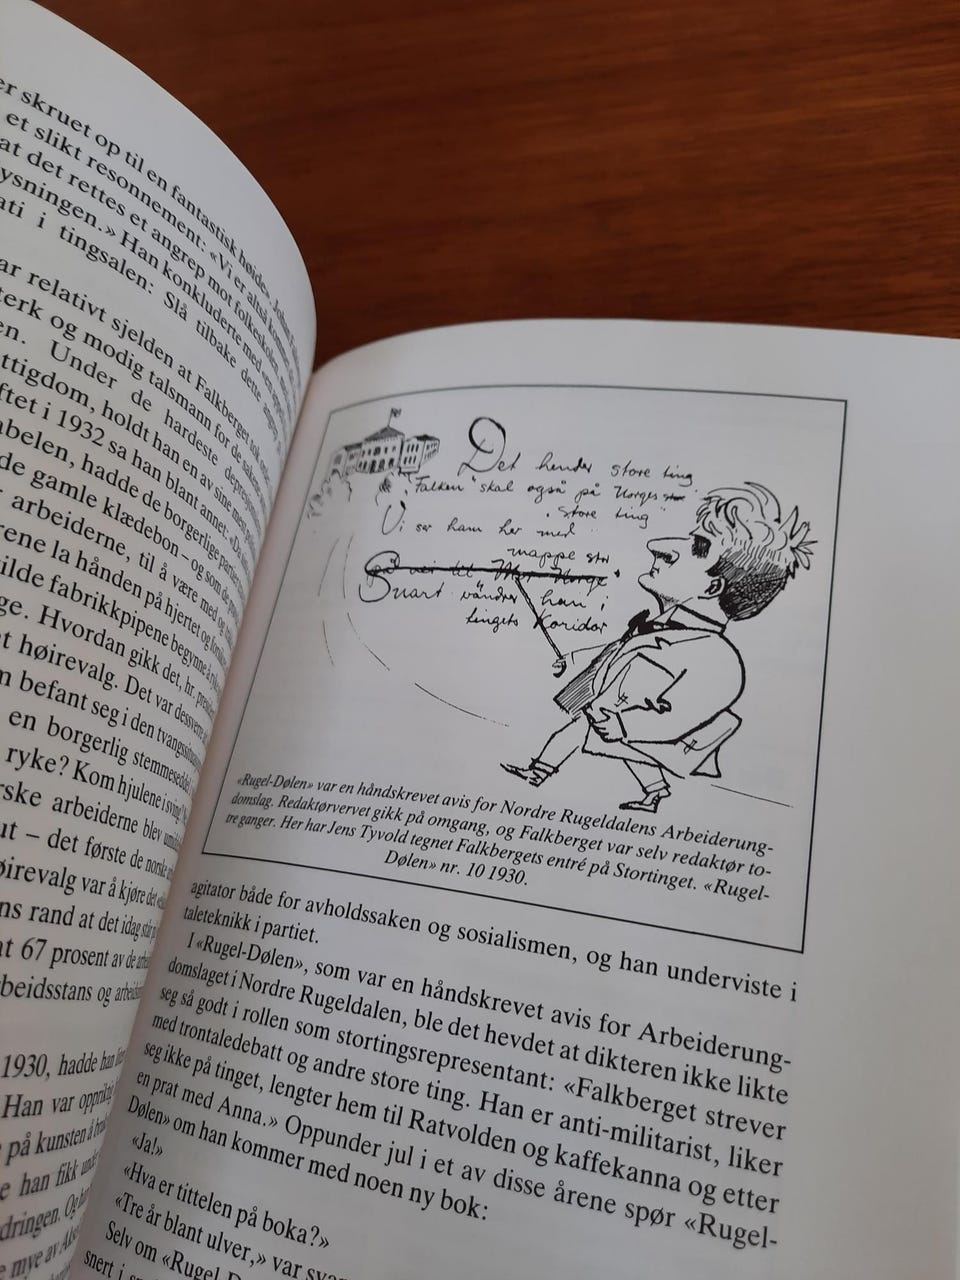 er skruet op til en fantastisk høide».
et slikt resonnement: «Vi er altså kommet
at det rettes et angrep mot folkeskolen,
ysningen.» Han konkluderte med
ati i tingsalen: Slå tilbake dette
ar relativt sjelden at Falkberget tok
terk og modig talsmann for de
en. Under de hardeste
ttigdom, holdt han en av sine mest
ftet i 1932 sa han blant annet:
abelen, hadde de borgerlige
de gamle klædebon – og som
arbeiderne, til å være med og
rene la hånden på hjertet og
ilde fabrikkpipene begynne å
ge. Hvordan gikk det, hr.
t høirevalg. Det var dessverre
m befant seg i den
en borgerlig stemmeseddel
ryke? Kom hjulene i sving?
rske arbeiderne blev
ut – det første de norske
øirevalg var å kjøre det
ns rand at det idag står
at 67 prosent av de
beidsstans og
1930, hadde han
Han var oppriktig
på kunsten å
e han fikk under
dringen. Og
e mye av
Det hender store ting
"Falken" skal også på Norges
"store ting"
Vi ser ham her med
mappe stor
Snart vandrer han i
tingets Koridor
«Rugel-Dølen» var en håndskrevet avis for Nordre Rugeldalens Arbeiderung-
domslag. Redaktørvervet gikk på omgang, og Falkberget var selv redaktør to-
tre ganger. Her har Jens Tyvold tegnet Falkbergets entré på Stortinget. «Rugel-
Dølen» nr. 10 1930.
agitator både for avholdssaken og sosialismen, og han underviste i
taleteknikk i partiet.
I «Rugel-Dølen», som var en håndskrevet avis for Arbeiderung-
domslaget i Nordre Rugeldalen, ble det hevdet at dikteren ikke likte
seg så godt i rollen som stortingsrepresentant: «Falkberget strever
med trontaledebatt og andre store ting. Han er anti-militarist, liker
seg ikke på tinget, lengter hem til Ratvolden og kaffekanna og etter
en prat med Anna.» Oppunder jul i et av disse årene spør «Rugel-
Dølen» om han kommer med noen ny bok:
«Ja!»
«Hva er tittelen på boka?»
«Tre år blant ulver,» var
Selv om «Rugel-
snert i